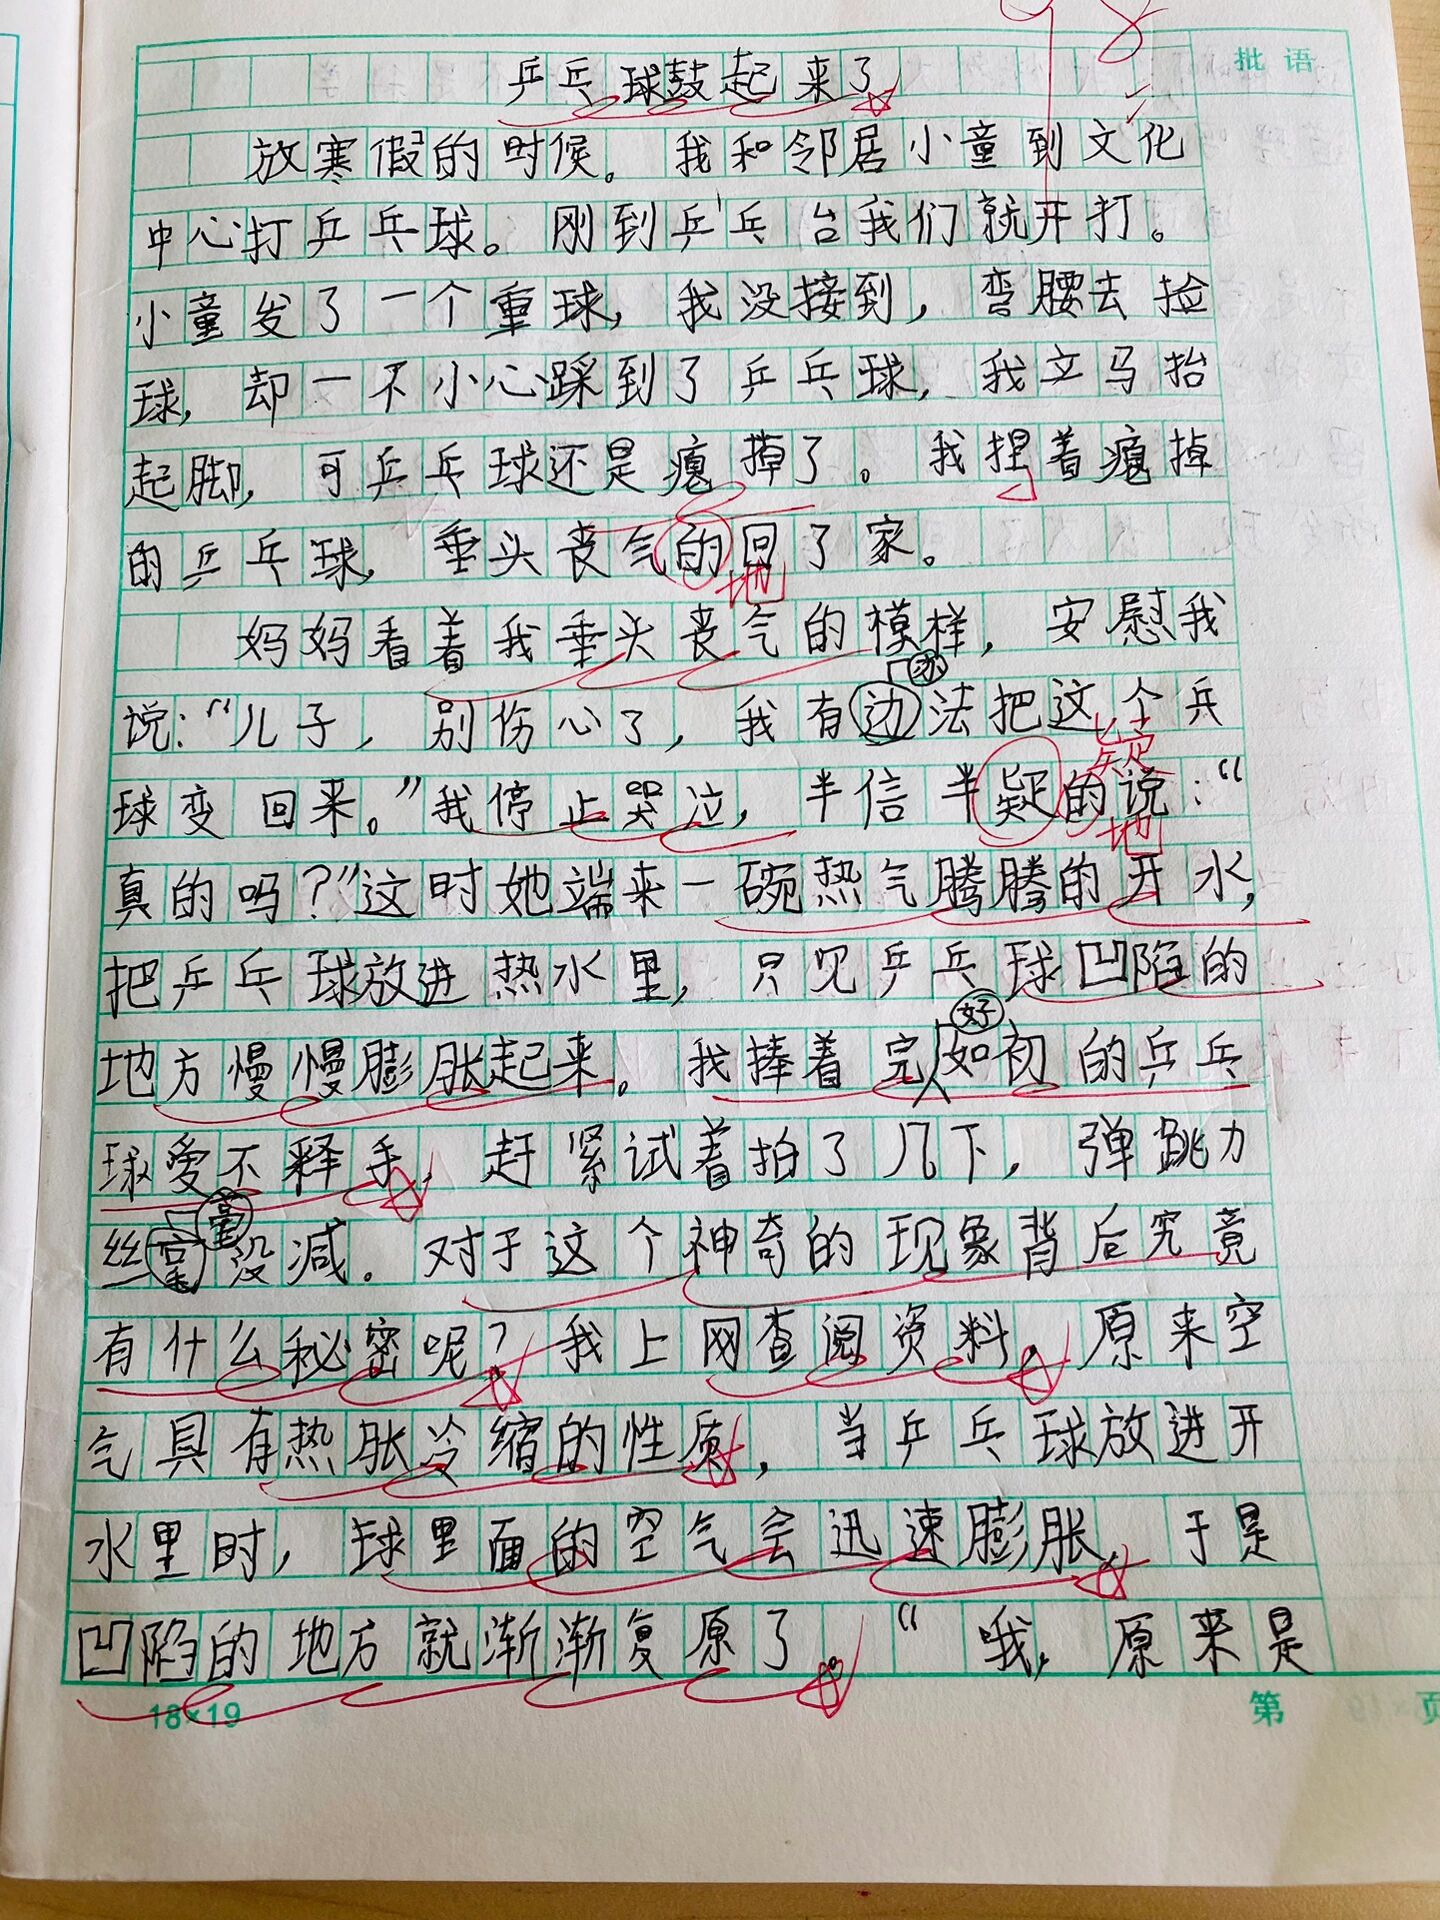 98
批语
乒乓球鼓起来了
放寒假的时候。我和邻居小童到文化
中心打乒乓球。刚到乒乓台我们就开打。
小童发了一个重球,我没接到,弯腰去捡
球,却一不小心踩到了乒乓球,我立马抬
起脚,可乒乓球还是瘪掉了。我捏着瘪掉
的乒乓球,垂头丧气的回了家。
地
妈妈看着我垂头丧气的模样,安慰我
办
说:“儿子,别伤心了,我有边法把这个乒
疑
球变回来。”我停止哭泣,半信半疑的说:“
地
真的吗?”这时她端来一碗热气腾腾的开水,
把乒乓球放进热水里,只见乒乓球凹陷的
好
地方慢慢膨胀起来。我捧着完如初的乒乓
球爱不释手,赶紧试着拍了几下,弹跳力
毫
丝毫没减。对于这个神奇的现象背后究竟
有什么秘密呢?我上网查阅资料,原来空
气具有热胀冷缩的性质,当乒乓球放进开
水里时,球里面的空气会迅速膨胀,于是
凹陷的地方就渐渐复原了。“哦,原来是
18×19
第 页